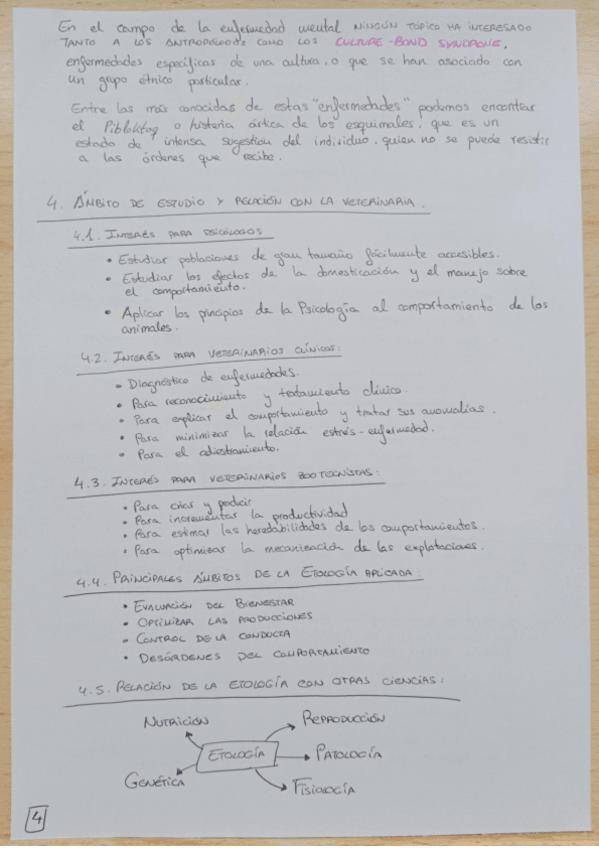 En el campo de la enfermedad mental NINGÚN TÓPICO HA INTERESADO
TANTO A LOS ANTROPÓLOGOS COMO LOS CULTURE-BOND SYNDROME,
enfermedades específicas de una cultura, o que se han asociado con
un grupo étnico particular.
Entre las más conocidas de estas "enfermedades" podemos encontrar
el Pibloktoq o histeria ártica de los esquimales, que es un
estado de intensa sugestión del individuo, quien no se puede resistir
a las órdenes que recibe.
4. ÁMBITO DE ESTUDIO Y RELACIÓN CON LA VETERINARIA.
4.1. INTERÉS PARA PSICÓLOGOS
• Estudiar poblaciones de gran tamaño fácilmente accesibles.
• Estudiar los efectos de la domesticación y el manejo sobre
el comportamiento.
• Aplicar los principios de la Psicología al comportamiento de los
animales.
4.2. INTERÉS PARA VETERINARIOS CLÍNICOS:
• Diagnóstico de enfermedades.
• Para reconocimiento y tratamiento clínico.
• Para explicar el comportamiento y tratar sus anomalías.
• Para minimizar la relación estrés-enfermedad.
• Para el adiestramiento.
4.3. INTERÉS PARA VETERINARIOS ZOOTECNISTAS:
• Para criar y producir
• Para incrementar la productividad
• Para estimar las heredabilidades de los comportamientos.
• Para optimizar la mecanización de las explotaciones.
4.4. PRINCIPALES ÁMBITOS DE LA ETOLOGÍA APLICADA:
• EVALUACIÓN DEL BIENESTAR
• OPTIMIZAR LAS PRODUCCIONES
• CONTROL DE LA CONDUCTA
• DESÓRDENES DEL COMPORTAMIENTO
4.5. RELACIÓN DE LA ETOLOGÍA CON OTRAS CIENCIAS:
NUTRICIÓN
REPRODUCCIÓN
ETOLOGÍA
PATOLOGÍA
GENÉTICA
FISIOLOGÍA
4